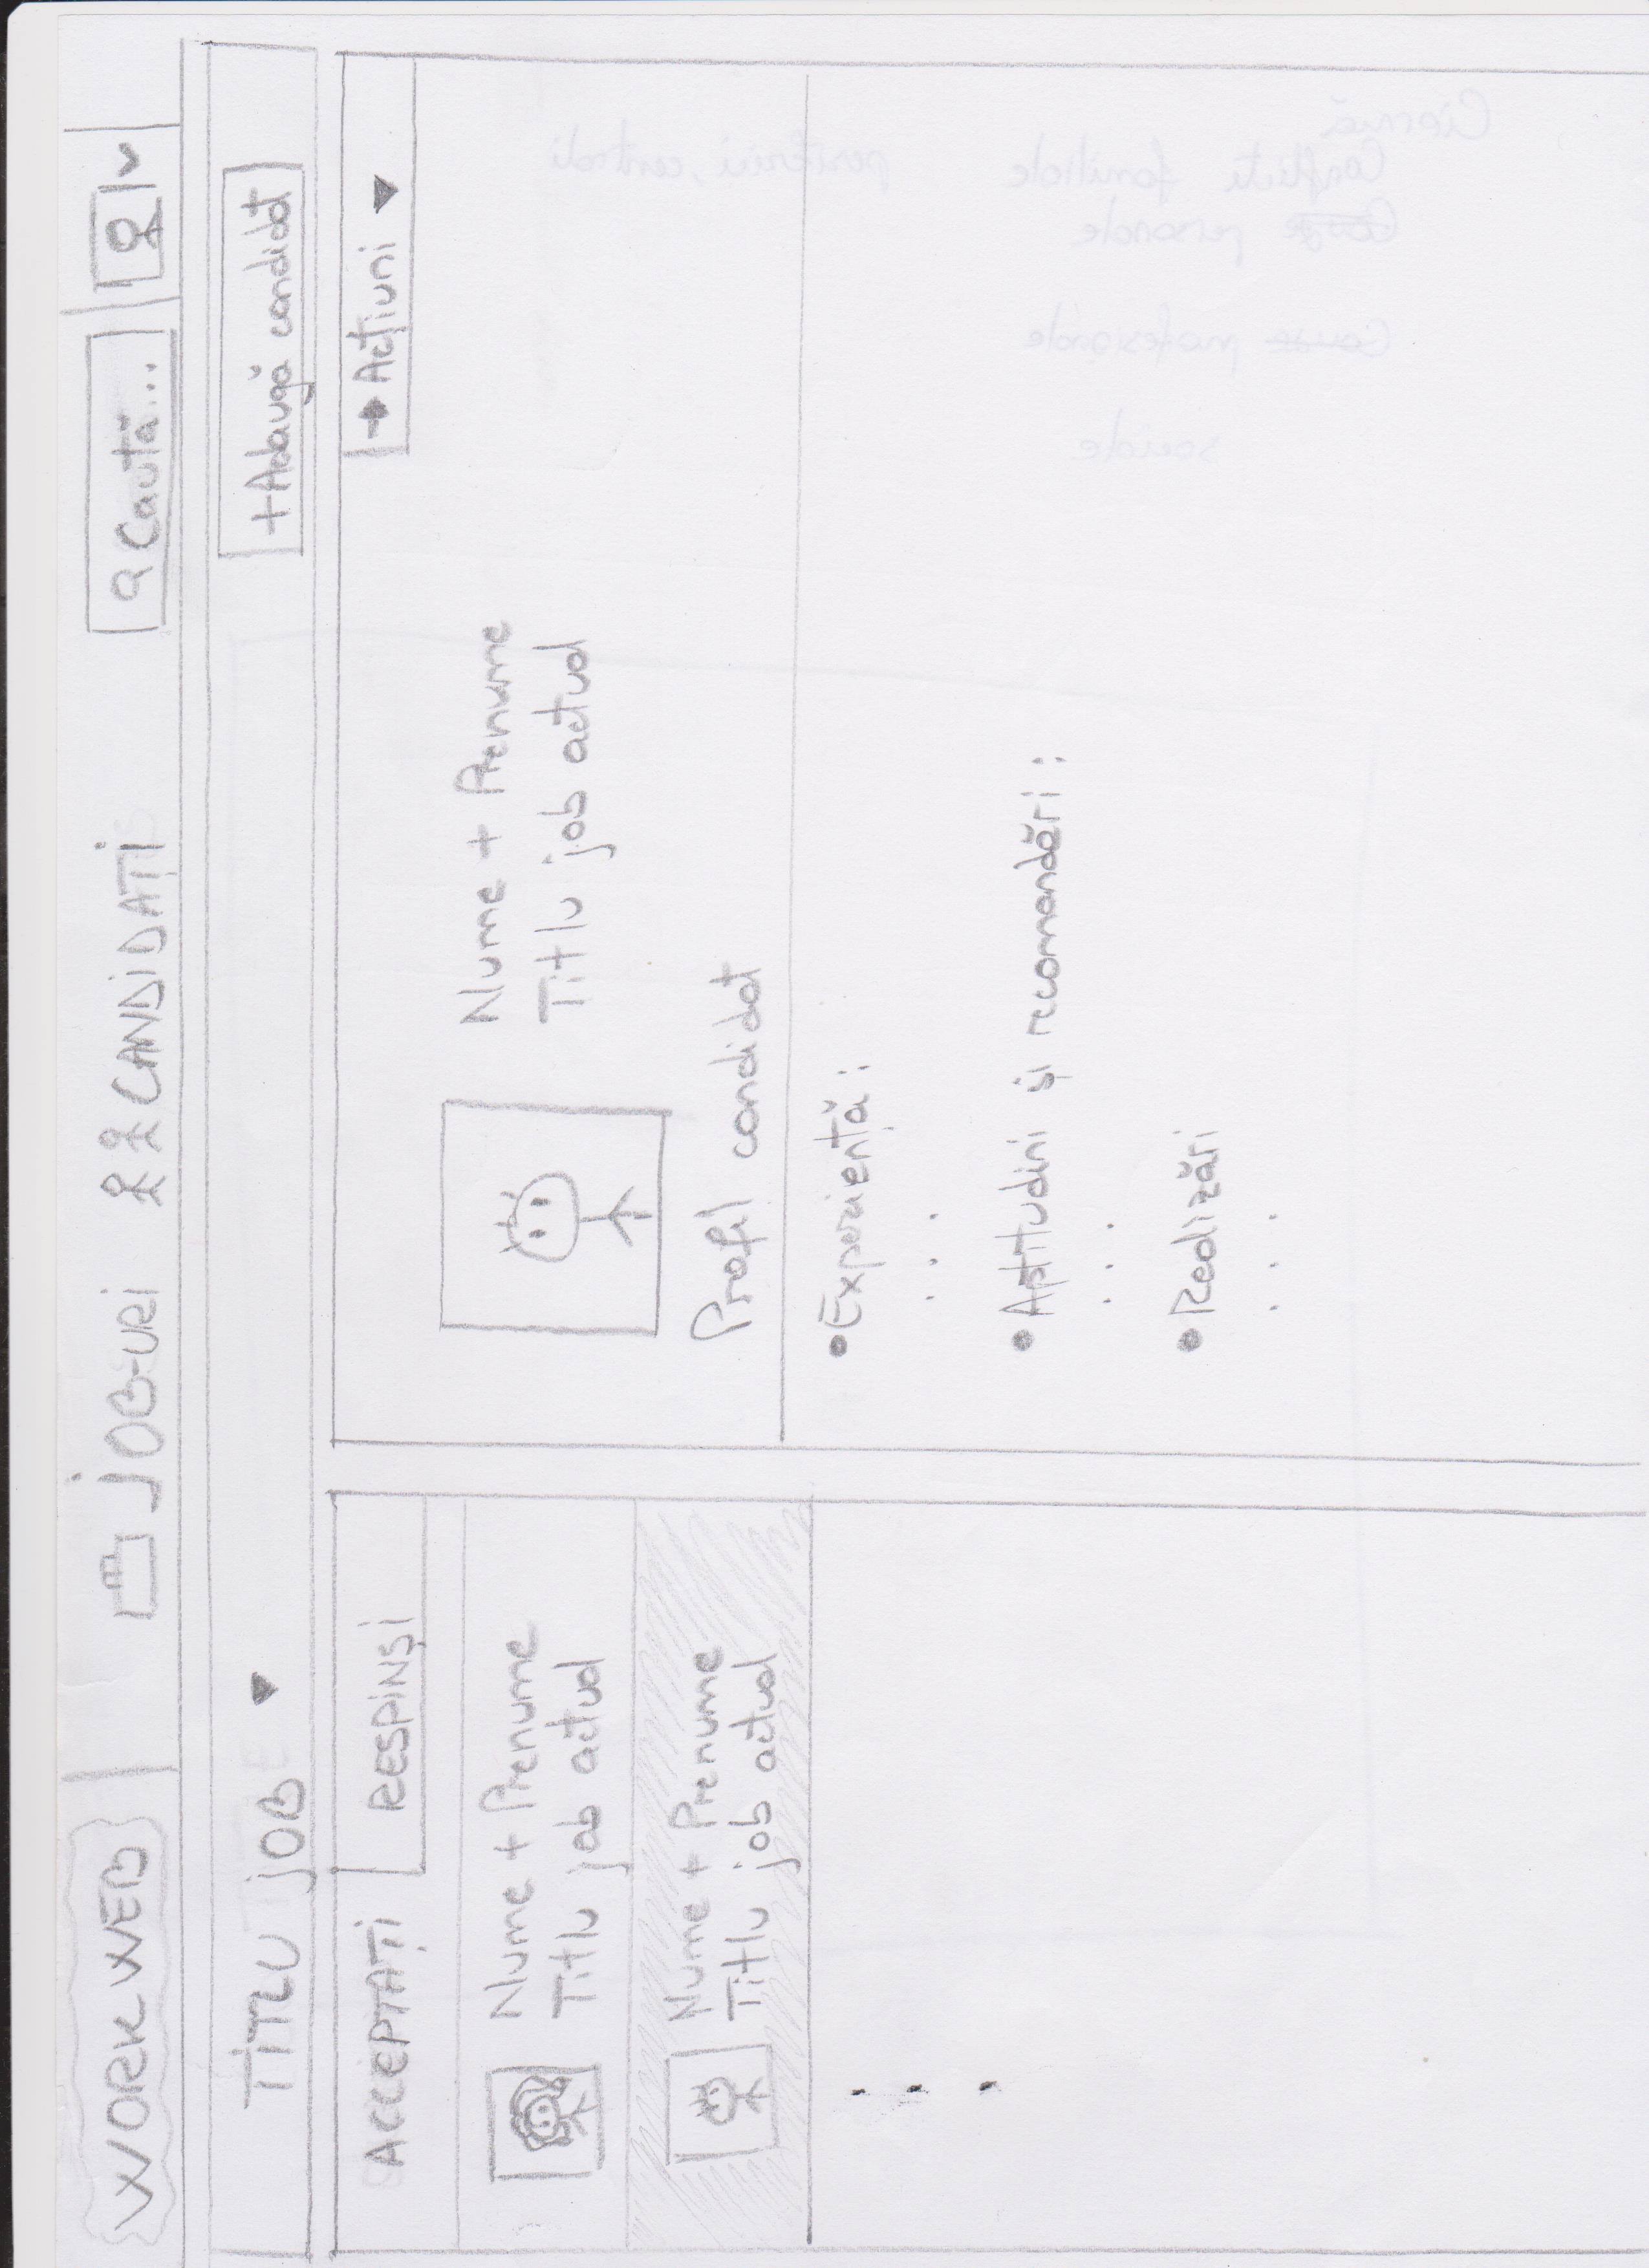 WORK WEB
JOB-URI
CANDIDAȚI
Caută...
TITLU JOB
+Adaugă candidat
ACCEPTAȚI
RESPINȘI
Nume + Prenume
Titlu job actual
Nume + Prenume
Titlu job actual
Acțiuni
Nume + Prenume
Titlu job actual
Profil candidat
• Experiență :
. . .
• Aptitudini și recomandări :
. . .
• Realizări
. . .